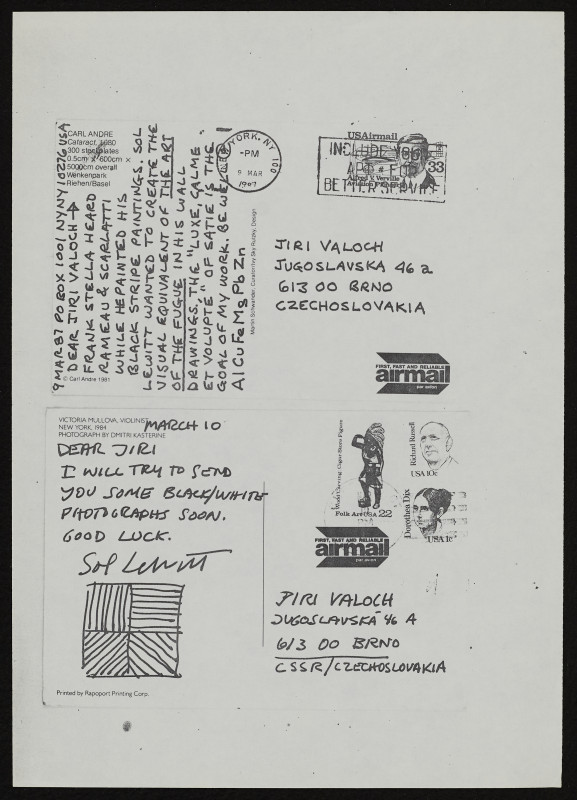 CARL ANDRE
Cataract, 1980
300 steel plates
0.5cm × 600cm ×
5000cm overall
Wenkenpark
Riehen/Basel
© Carl Andre 1981
9 MAR 87 PO BOX 1001 NY NY 10276 USA
DEAR JIRI VALOCH →
FRANK STELLA HEARD
RAMEAU & SCARLATTI
WHILE HE PAINTED HIS
BLACK STRIPE PAINTINGS. SOL
LEWITT WANTED TO CREATE THE
VISUAL EQUIVALENT OF THE ART
OF THE FUGUE IN HIS WALL
DRAWINGS. THE "LUXE, CALME
ET VOLUPTÉ" OF SATIE IS THE
GOAL OF MY WORK. BE WELL
Al Cu Fe Mg Pb Zn
Martin Schwander, Curator/Ivy Sky Rutzky, Design
YORK, NY 100
-PM
9 MAR
1987
USAirmail
33
Alfred V. Verville
Aviation Pioneer
INCLUDE YOUR
APT # FOR
BETTER SERVICE
JIRI VALOCH
JUGOSLAVSKA 46 a
613 00 BRNO
CZECHOSLOVAKIA
FIRST, FAST AND RELIABLE
airmail
par avion
VICTORIA MULLOVA, VIOLINIST
NEW YORK, 1984
PHOTOGRAPH BY DMITRI KASTERINE
MARCH 10
DEAR JIRI
I WILL TRY TO SEND
YOU SOME BLACK/WHITE
PHOTOGRAPHS SOON.
GOOD LUCK.
Sol LeWitt
Printed by Rapoport Printing Corp.
Wood Carving: Cigar-Store Figure
Folk Art USA 22
Richard Russell
USA 10c
Dorothea Dix
USA 1c
FIRST, FAST AND RELIABLE
airmail
par avion
JIRI VALOCH
JUGOSLAVSKÁ 46 A
613 00 BRNO
CSSR/CZECHOSLOVAKIA